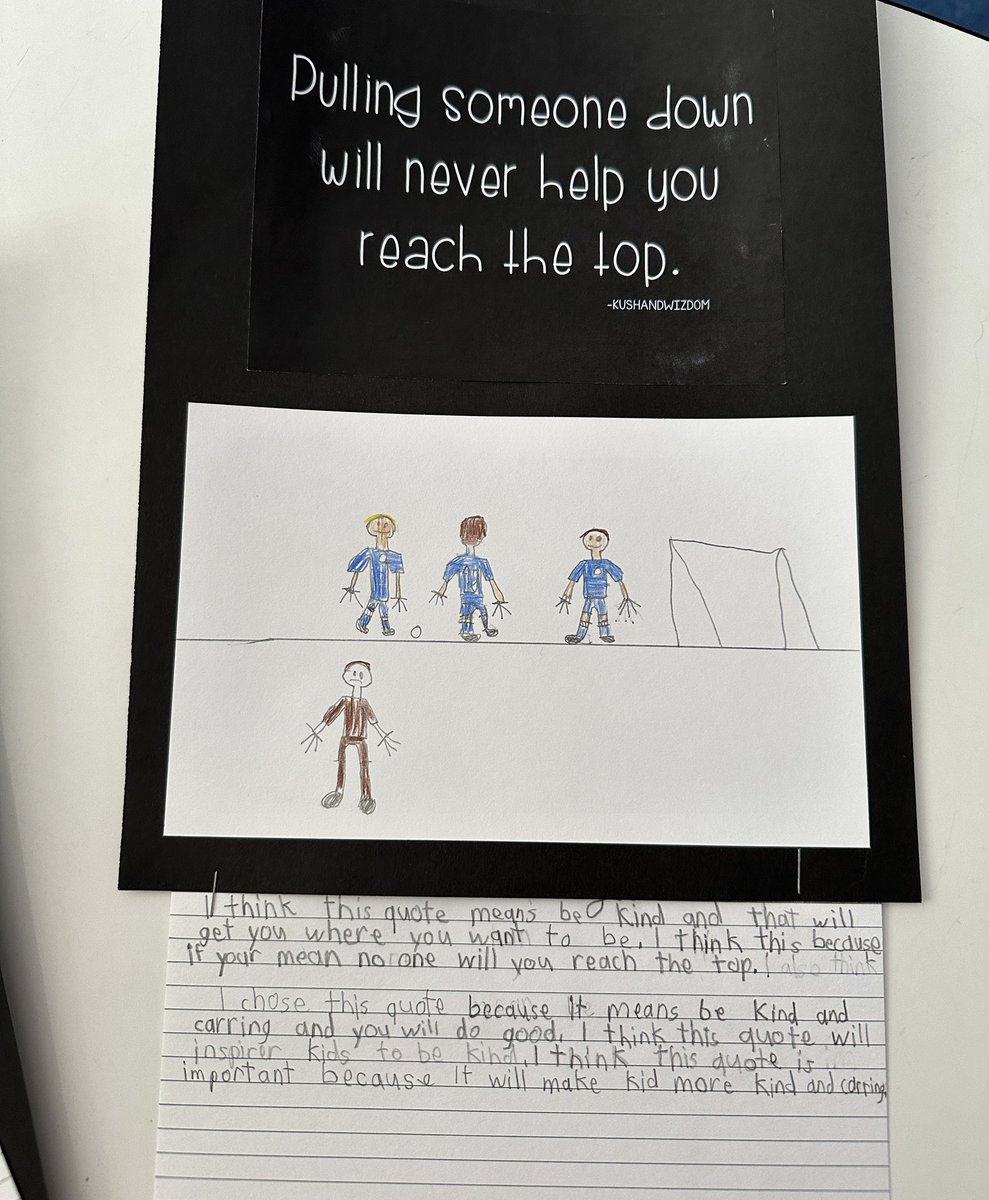 Pulling someone down
will never help you
reach the top.
-KUSHANDWIZDOM
I think this quote means be kind and that will
get you where you want to be. I think this because
if your mean no one will you reach the top. I also think
I chose this quote because it means be kind and
carring and you will do good. I think this quote will
inspirer kids to be kind. I think this quote is
important because it will make kid more kind and carring.